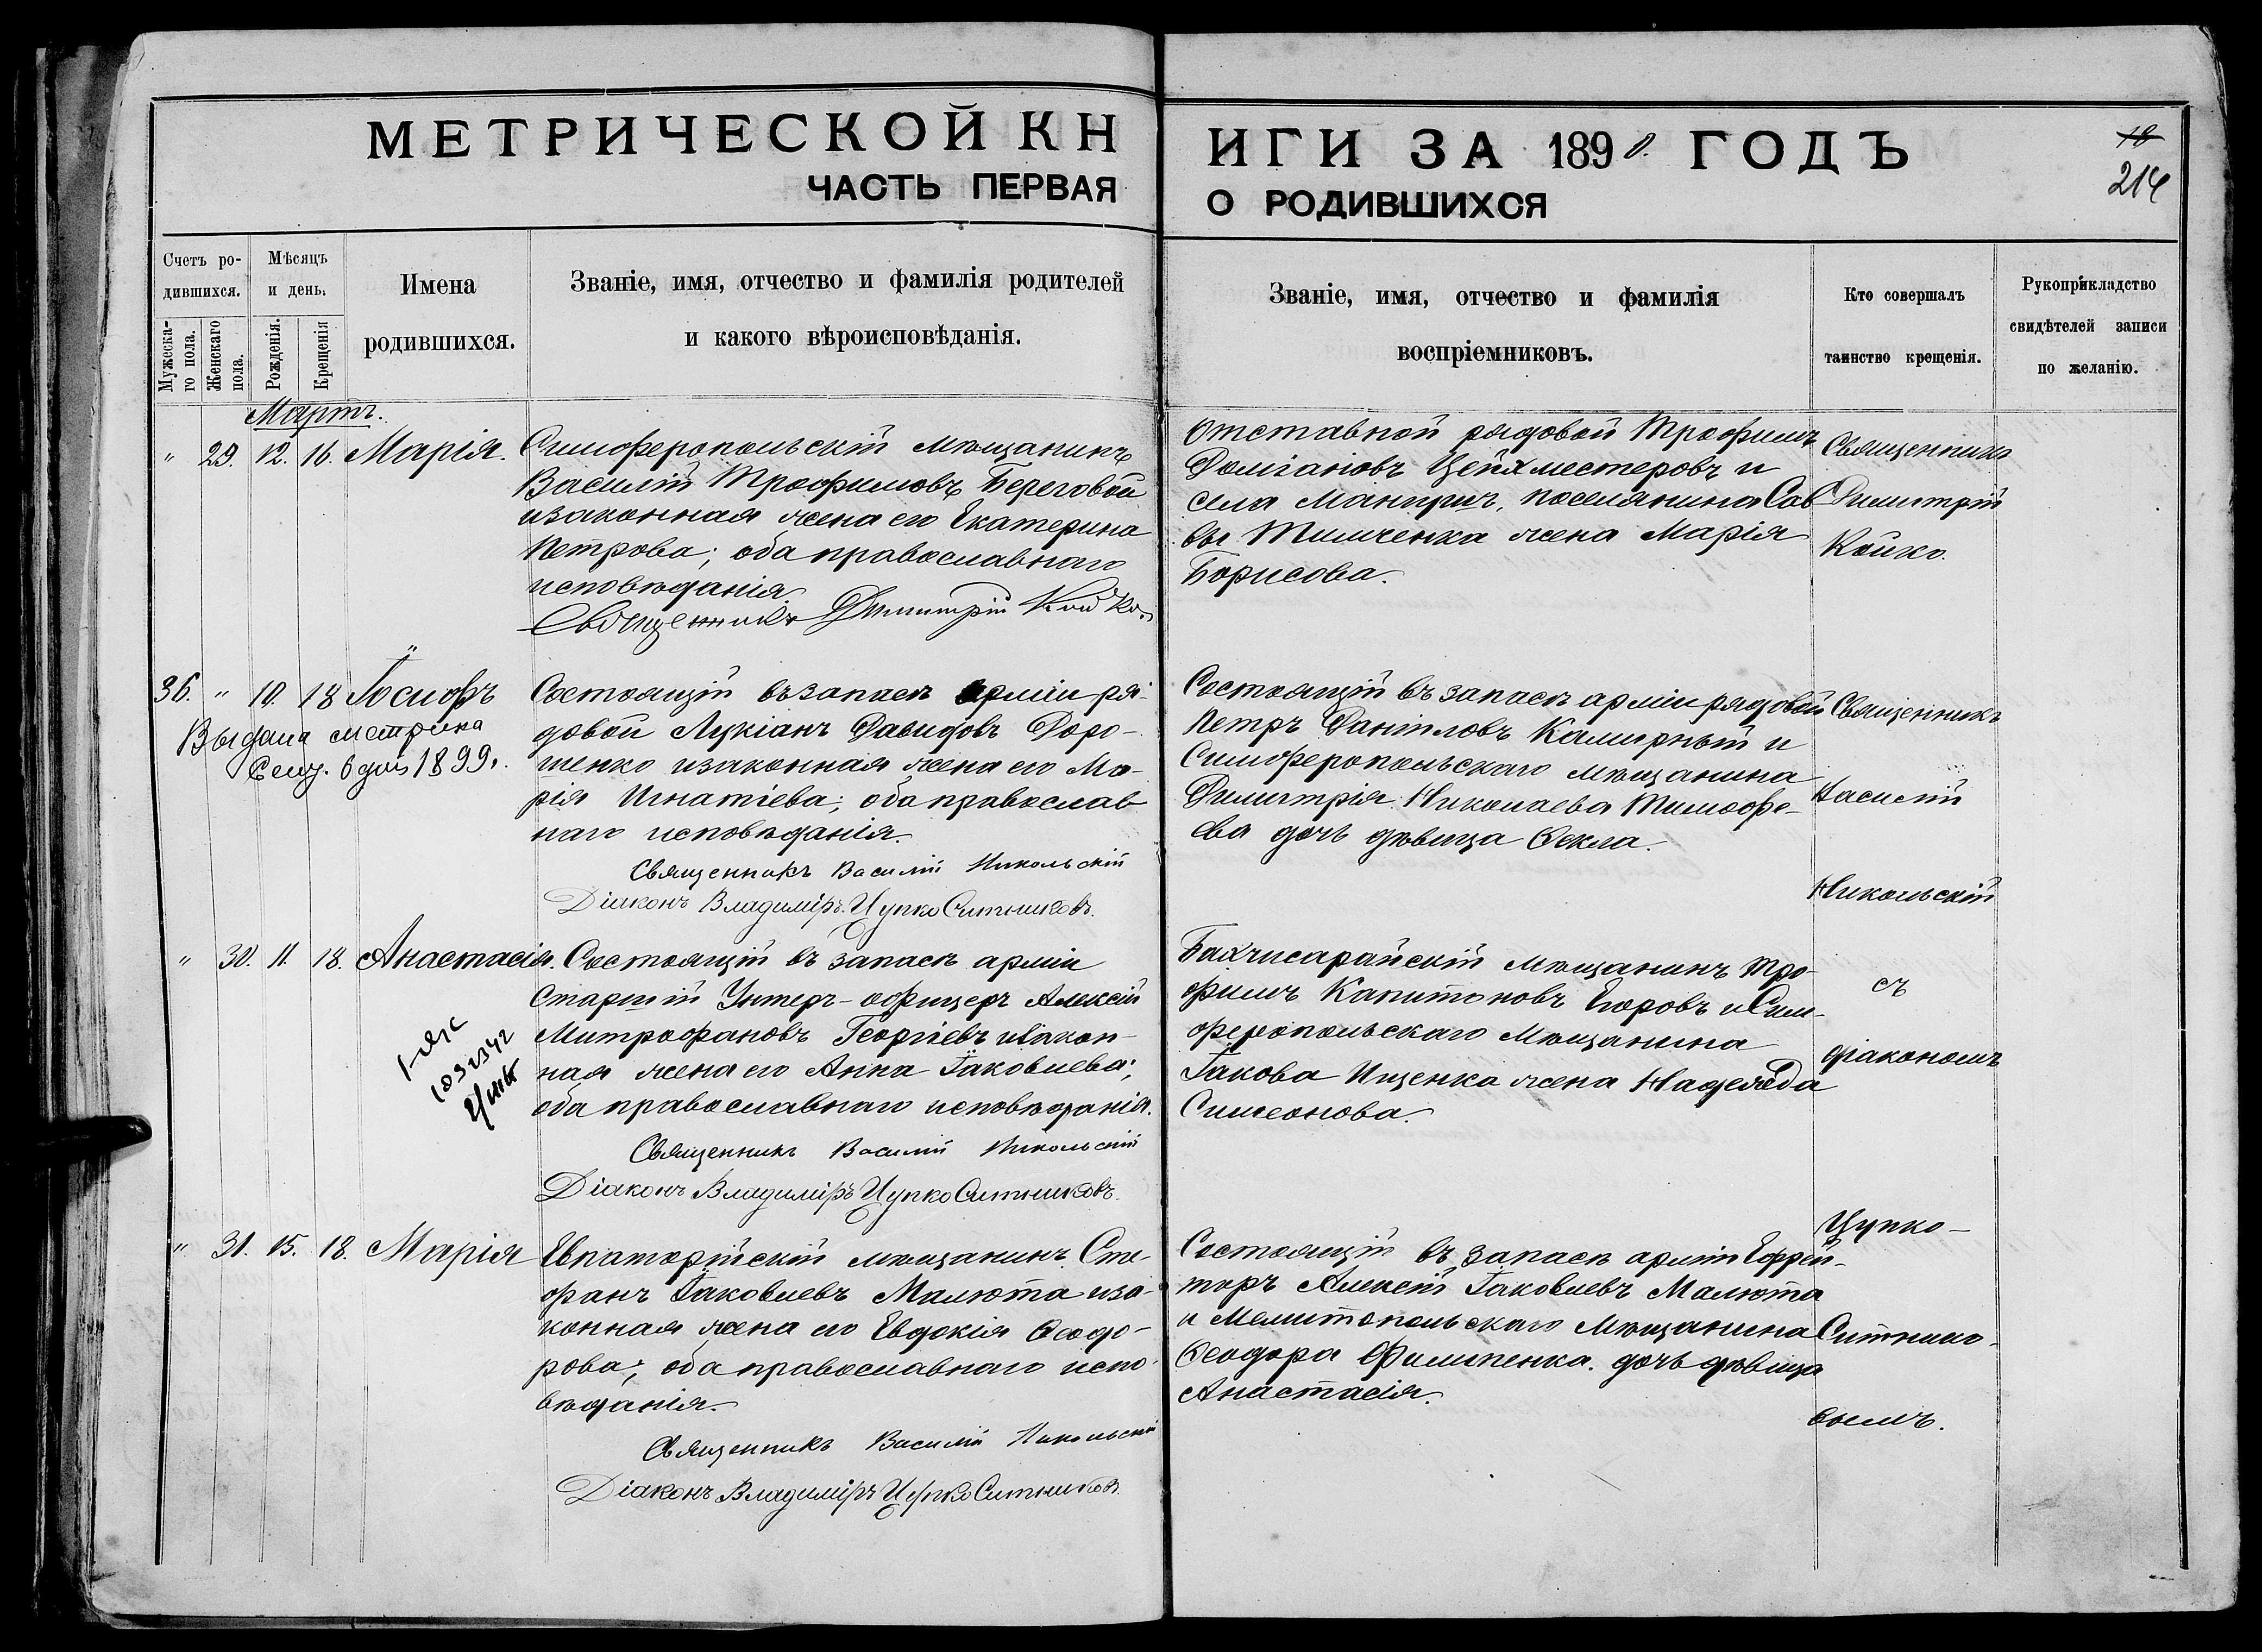 МЕТРИЧЕСКОЙ КН
ЧАСТЬ ПЕРВАЯ
Счетъ ро-
дившихся.
Мужеска-
го пола.
Женскаго
пола.
Мѣсяцъ
и день.
Рожденія.
Крещенія
Имена
родившихся.
Званіе, имя, отчество и фамилія родителей
и какого вѣроисповѣданія.
Мартъ.
" 29. 12. 16. Марія.
Симферопольскій мѣщанинъ
Василій Трофимовъ Береговой
и законная жена его Екатерина
Петрова; оба православнаго
исповѣданія
Священникъ Димитрій Койко.
36. " 10. 18 Іосифъ
Выдана метрика
6 дня 1899.
Состоящій въ запасѣ арміи ря-
довой Лукіанъ Давидовъ Доро-
шенко и законная жена его Ма-
рія Игнатіева; оба православ
наго исповѣданія.
Священникъ Василій Никольскій
Діаконъ Владиміръ Цупко Ситниковъ.
" 30. 11. 18. Анастасія.
Состоящій въ запасѣ арміи
Старшій Унтеръ-офицеръ Алексій
Митрофановъ Георгіевъ и закон-
ная жена его Анна Іаковлева;
оба православнаго исповѣданія.
Священникъ Василій Никольскій
Діаконъ Владиміръ Цупко Ситниковъ.
" 31. 15. 18. Марія
Евпаторійскій мѣщанинъ Сте-
фанъ Іаковлевъ Малюта и за-
конная жена его Евдокія Ѳеодо-
рова; оба православнаго испо-
вѣданія.
Священникъ Василій Никольскій
Діаконъ Владиміръ Цупко Ситниковъ.
ИГИ ЗА 1890. ГОДЪ
О РОДИВШИХСЯ
18
214
Званіе, имя, отчество и фамилія
воспріемниковъ.
Кто совершалъ
таинство крещенія.
Рукоприкладство
свидѣтелей записи
по желанію.
Отставной рядовой Трофимъ
Цейхместеровъ и
села поселянина Сав
вы Тимченка жена Марія
Борисова.
Священникъ
Димитрій
Койко.
Состоящій въ запасѣ арміи рядовой
Петръ Даніиловъ Камирный и
Симферопольскаго мѣщанина
Димитрія Николаева Тимофе-
ева дочь дѣвица Ѳекла.
Священникъ
Василій
Никольскій
Бахчисарайскій мѣщанинъ Тро-
фимъ Капитоновъ Егоровъ и Сим-
феропольскаго мѣщанина
Іакова Ищенка жена Надежда
Симеонова.
съ
діакономъ
Состоящій въ запасѣ арміи Ефрей-
торъ Алексій Іаковлевъ Малюта
и Мелитопольскаго мѣщанина
Ѳеодора Филипенка дочь дѣвица
Анастасія.
Цупко-
Ситнико-
вымъ.